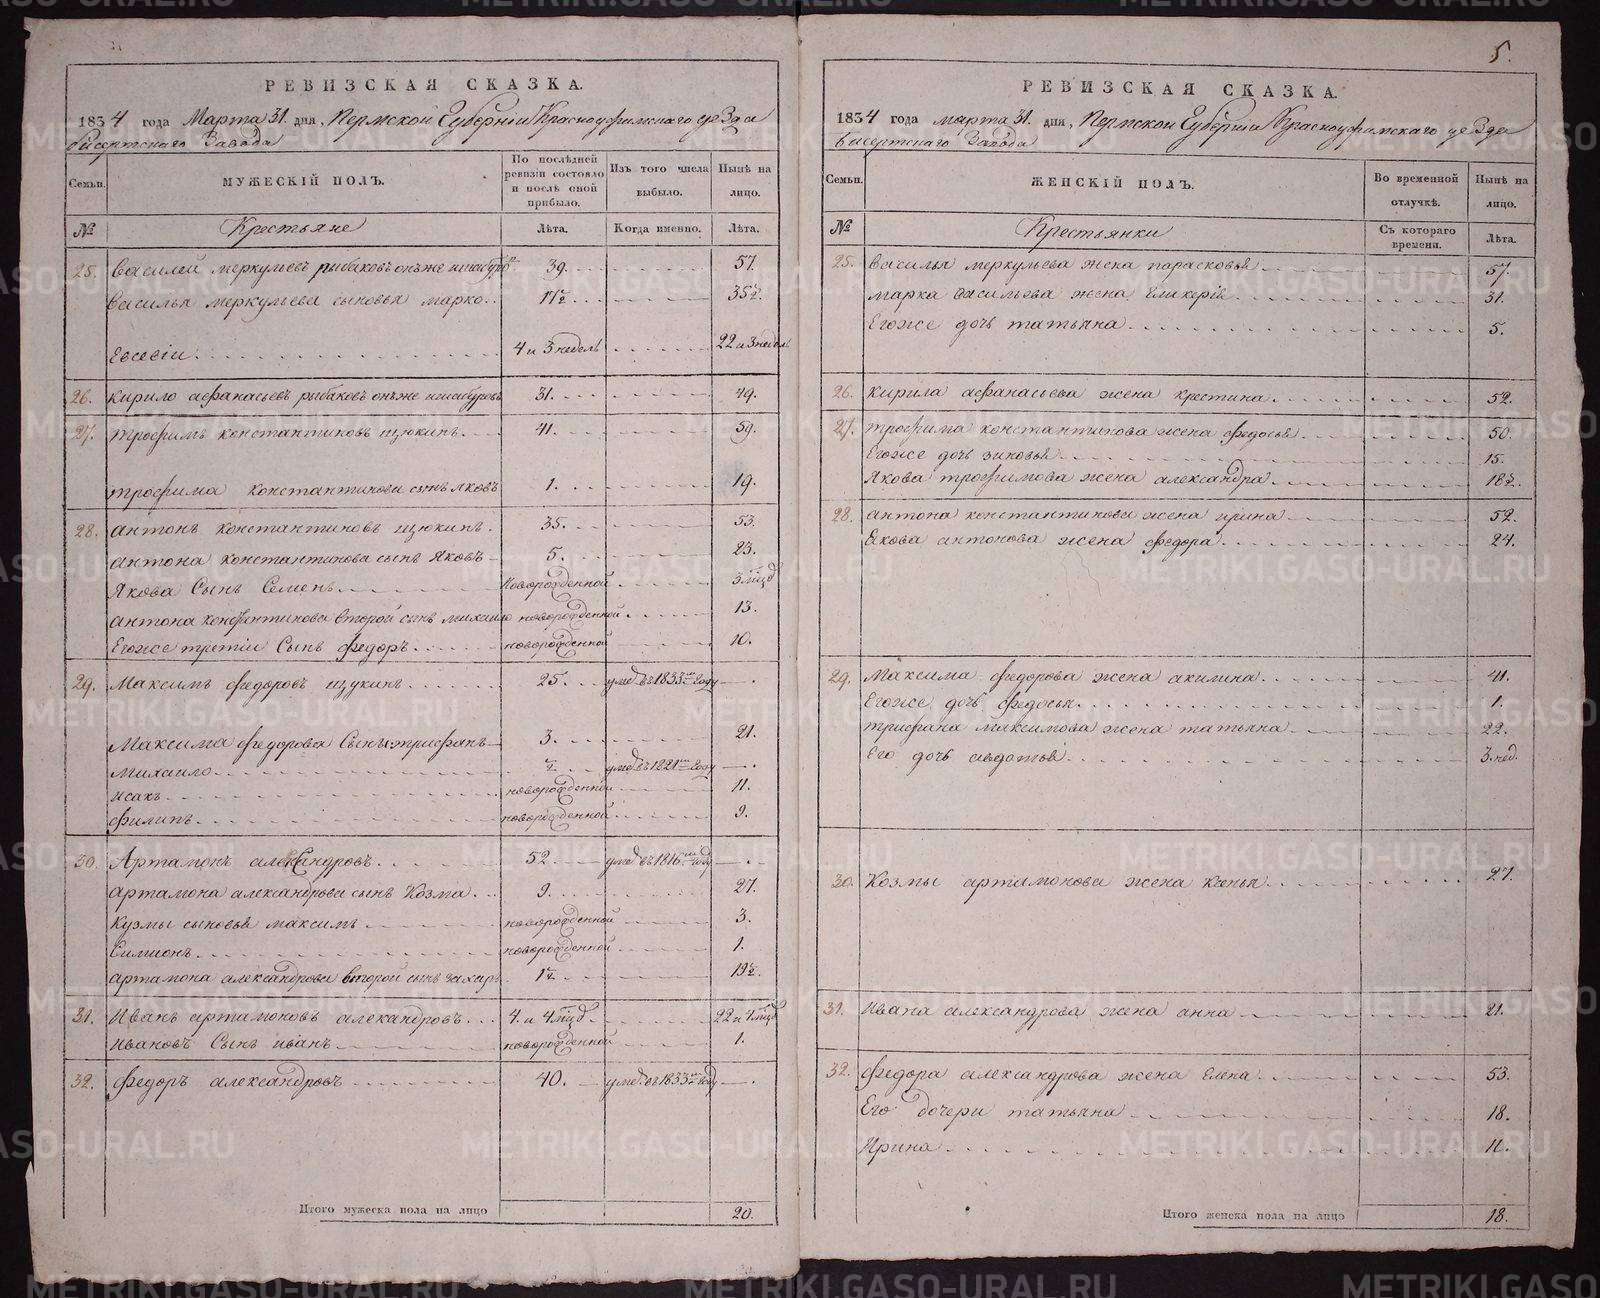 РЕВИЗСКАЯ СКАЗКА.
1834 года Марта 31. дня, Пермской Губернiи Красноуфимскаго уезда
бисертскаго Завода
Семьи.
МУЖЕСКIЙ ПОЛЪ.
По послѣдней ревизiи состояло и послѣ оной прибыло.
Изъ того числа выбыло.
Нынѣ на лицо.
№
Крестьяне
Лѣта.
Когда именно.
Лѣта.
25. василей меркульевъ рыбаковъ онъже 39. 57.
василья меркульева сыновья марко. 17½. 35½.
Евсевiи. 4 и 3 недель 22 и 3 недель
26. кирило афанасьевъ рыбаковъ онъже 31. 49.
27. трофимъ константиновъ щюкинъ. 41. 59.
трофима константинова сынъ яковъ 1. 19.
28. антонъ константиновъ щюкинъ. 35. 53.
антона константинова сынъ яковъ 5. 23.
Якова Сынъ Семенъ новорожденной 3 мцд
антона константинова второй сынъ михаило новорожденной. 13.
Егоже третiи Сынъ федоръ. новорожденной 10.
29. Максимъ федоровъ щукинъ. 25. умеръ въ 1833 году
Максима федорова Сынъ трифанъ 3. 21.
михаило. умеръ въ 1821 году
исакъ новорожденной 11.
филипъ. новорожденной 9.
30. Артамонъ александровъ. 52 умеръ въ 1816 году
артамона александрова сынъ Козма. 9. 27.
Кузмы сыновья максимъ новорожденной 3.
Симионъ. новорожденной 1.
артамона александрова второй сынъ захаръ 19½.
31. Иванъ артамоновъ александровъ. 4. и 4 мцд. 22 и 4 мцд
Ивановъ Сынъ иванъ новорожденной 1.
32. федоръ александровъ 40. умеръ въ 1833 году
Итого мужеска пола на лицо 20.
5.
РЕВИЗСКАЯ СКАЗКА.
1834 года марта 31. дня, Пермской Губернiи Красноуфимскаго уезда
бисертскаго Завода
Семьи.
ЖЕНСКIЙ ПОЛЪ.
Во временной отлучкѣ.
Нынѣ на лицо.
№
Крестьянки
Съ котораго времени.
Лѣта.
25. василья меркульева жена парасковья 57.
марка васильева жена гликерiя 31.
Егоже дочь татьяна 5.
26. кирила афанасьева жена крестина. 52.
27. трофима константинова жена федосья 50.
Егоже дочь зиновья 15.
Якова трофимова жена александра 18½.
28. антона константинова жена ирина 52.
Екова антонова жена федора. 24.
29. Максима федорова жена акилина. 41.
Егоже дочь федосья. 1.
трифана максимова жена татьяна 22.
Его дочь авдотья 3. нед.
30. Козмы артамонова жена 27.
31. Ивана александрова жена анна 21.
32. федора александрова жена Елена 53.
Его дочери татьяна 18.
Ирина 11.
Итого женска пола на лицо 18.
METRIKI.GASO-URAL.RU